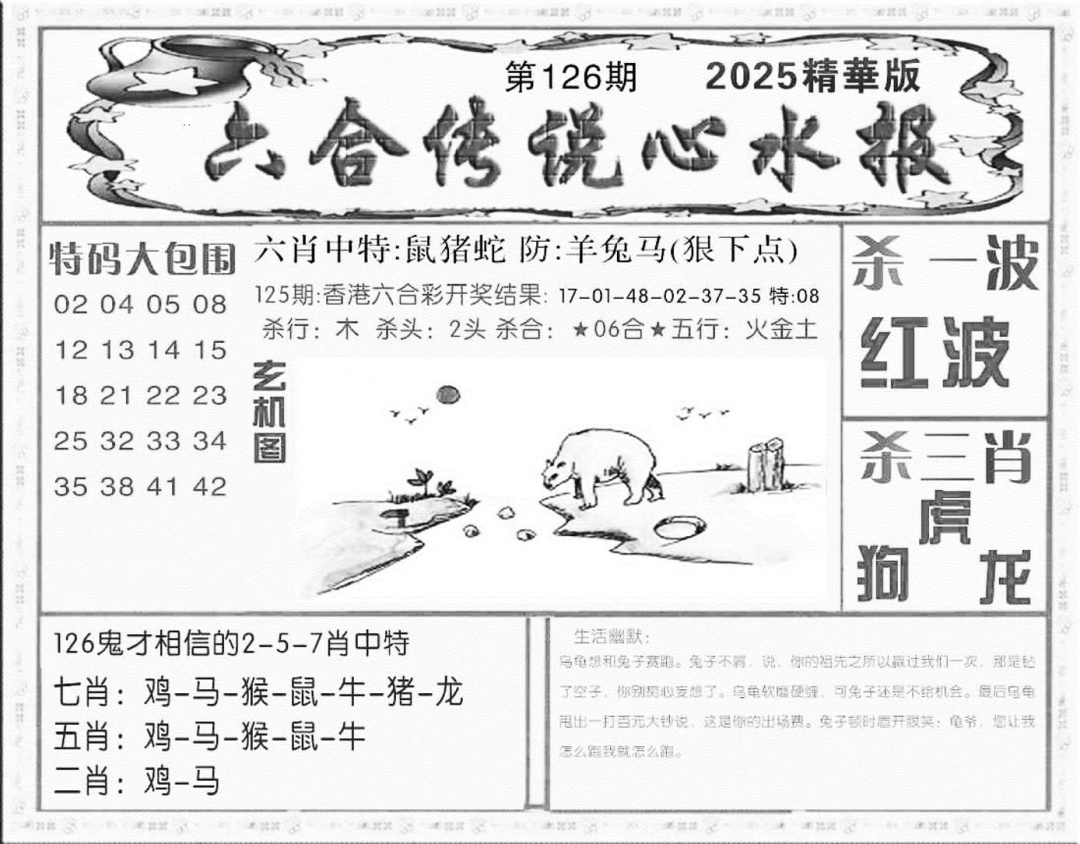 第126期 2025精華版
六合传说心水报
特码大包围
02 04 05 08
12 13 14 15
18 21 22 23
25 32 33 34
35 38 41 42
六肖中特:鼠猪蛇 防:羊兔马(狠下点)
125期:香港六合彩开奖结果: 17-01-48-02-37-35 特:08
杀行: 木 杀头: 2头 杀合: ★06合★五行: 火金土
玄机图
杀一波
红波
杀三肖
虎
狗 龙
126鬼才相信的2-5-7肖中特
七肖: 鸡-马-猴-鼠-牛-猪-龙
五肖: 鸡-马-猴-鼠-牛
二肖: 鸡-马
生活幽默:
乌龟想和兔子赛跑。兔子不屑，说，你的祖先之所以赢过我们一次，那是钻
了空子，你别痴心妄想了。乌龟软磨硬缠，可兔子还是不给机会。最后乌龟
甩出一打百元大钞说，这是你的出场费。兔子顿时眉开眼笑：龟爷，您让我
怎么跑我就怎么跑。